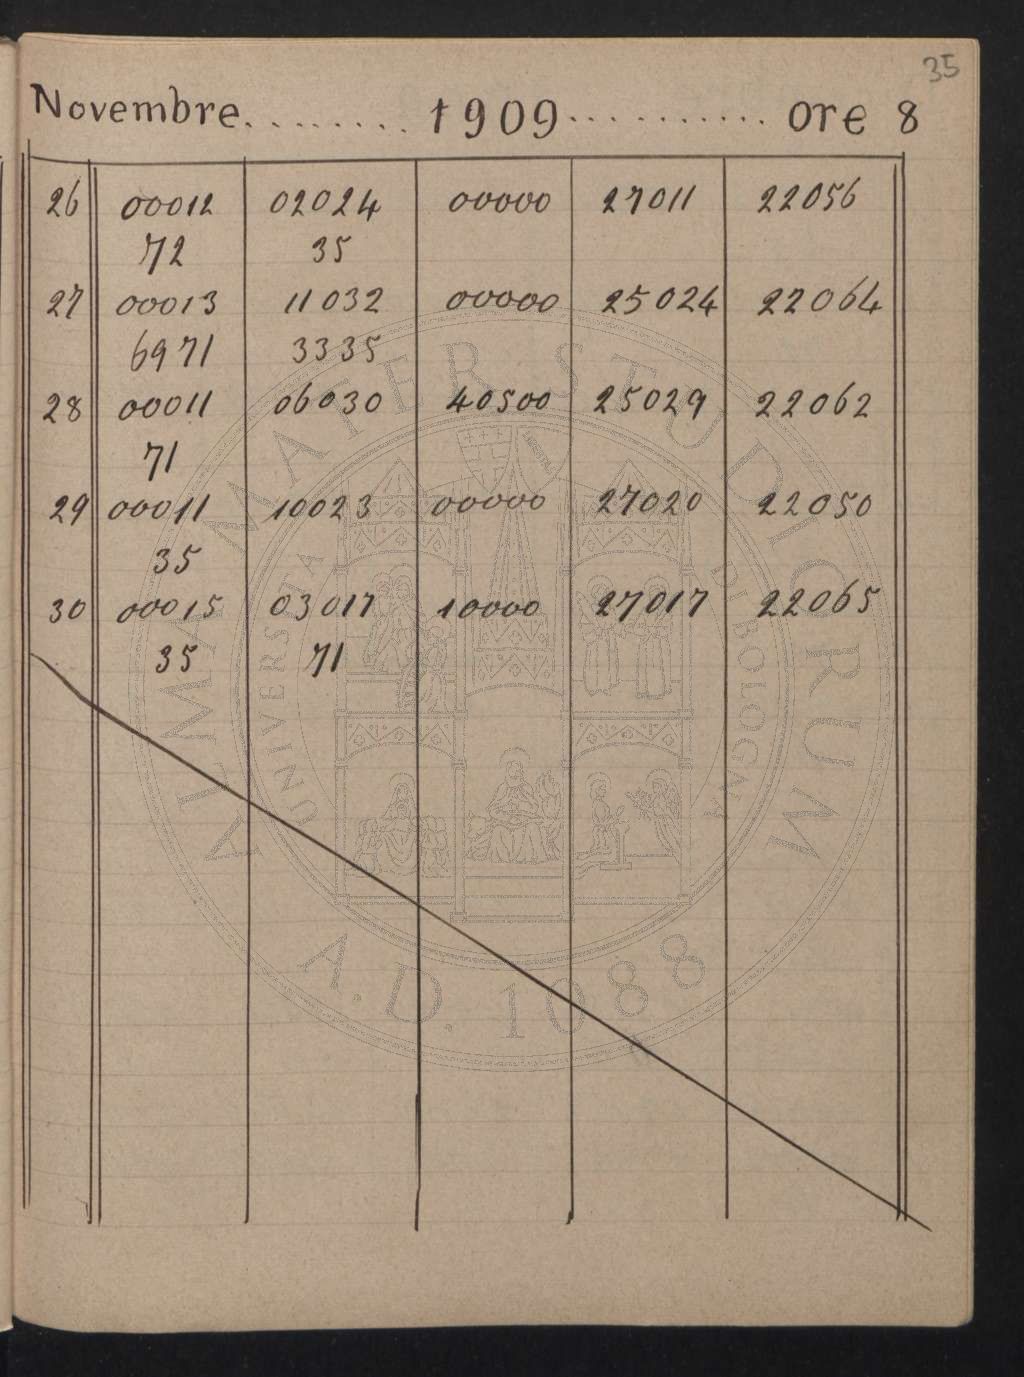 35
Novembre........1909..........ore 8
26 00012 02024 00000 27011 22056
72 35
27 00013 11032 00000 25024 22064
6971 3335
28 00011 06030 40500 25029 22062
71
29 00011 10023 00000 27020 22050
35
30 00015 03017 10000 27017 22065
35 71
ALMA MATER STUDIORUM
UNIVERSITÀ DI BOLOGNA
A.D. 1088